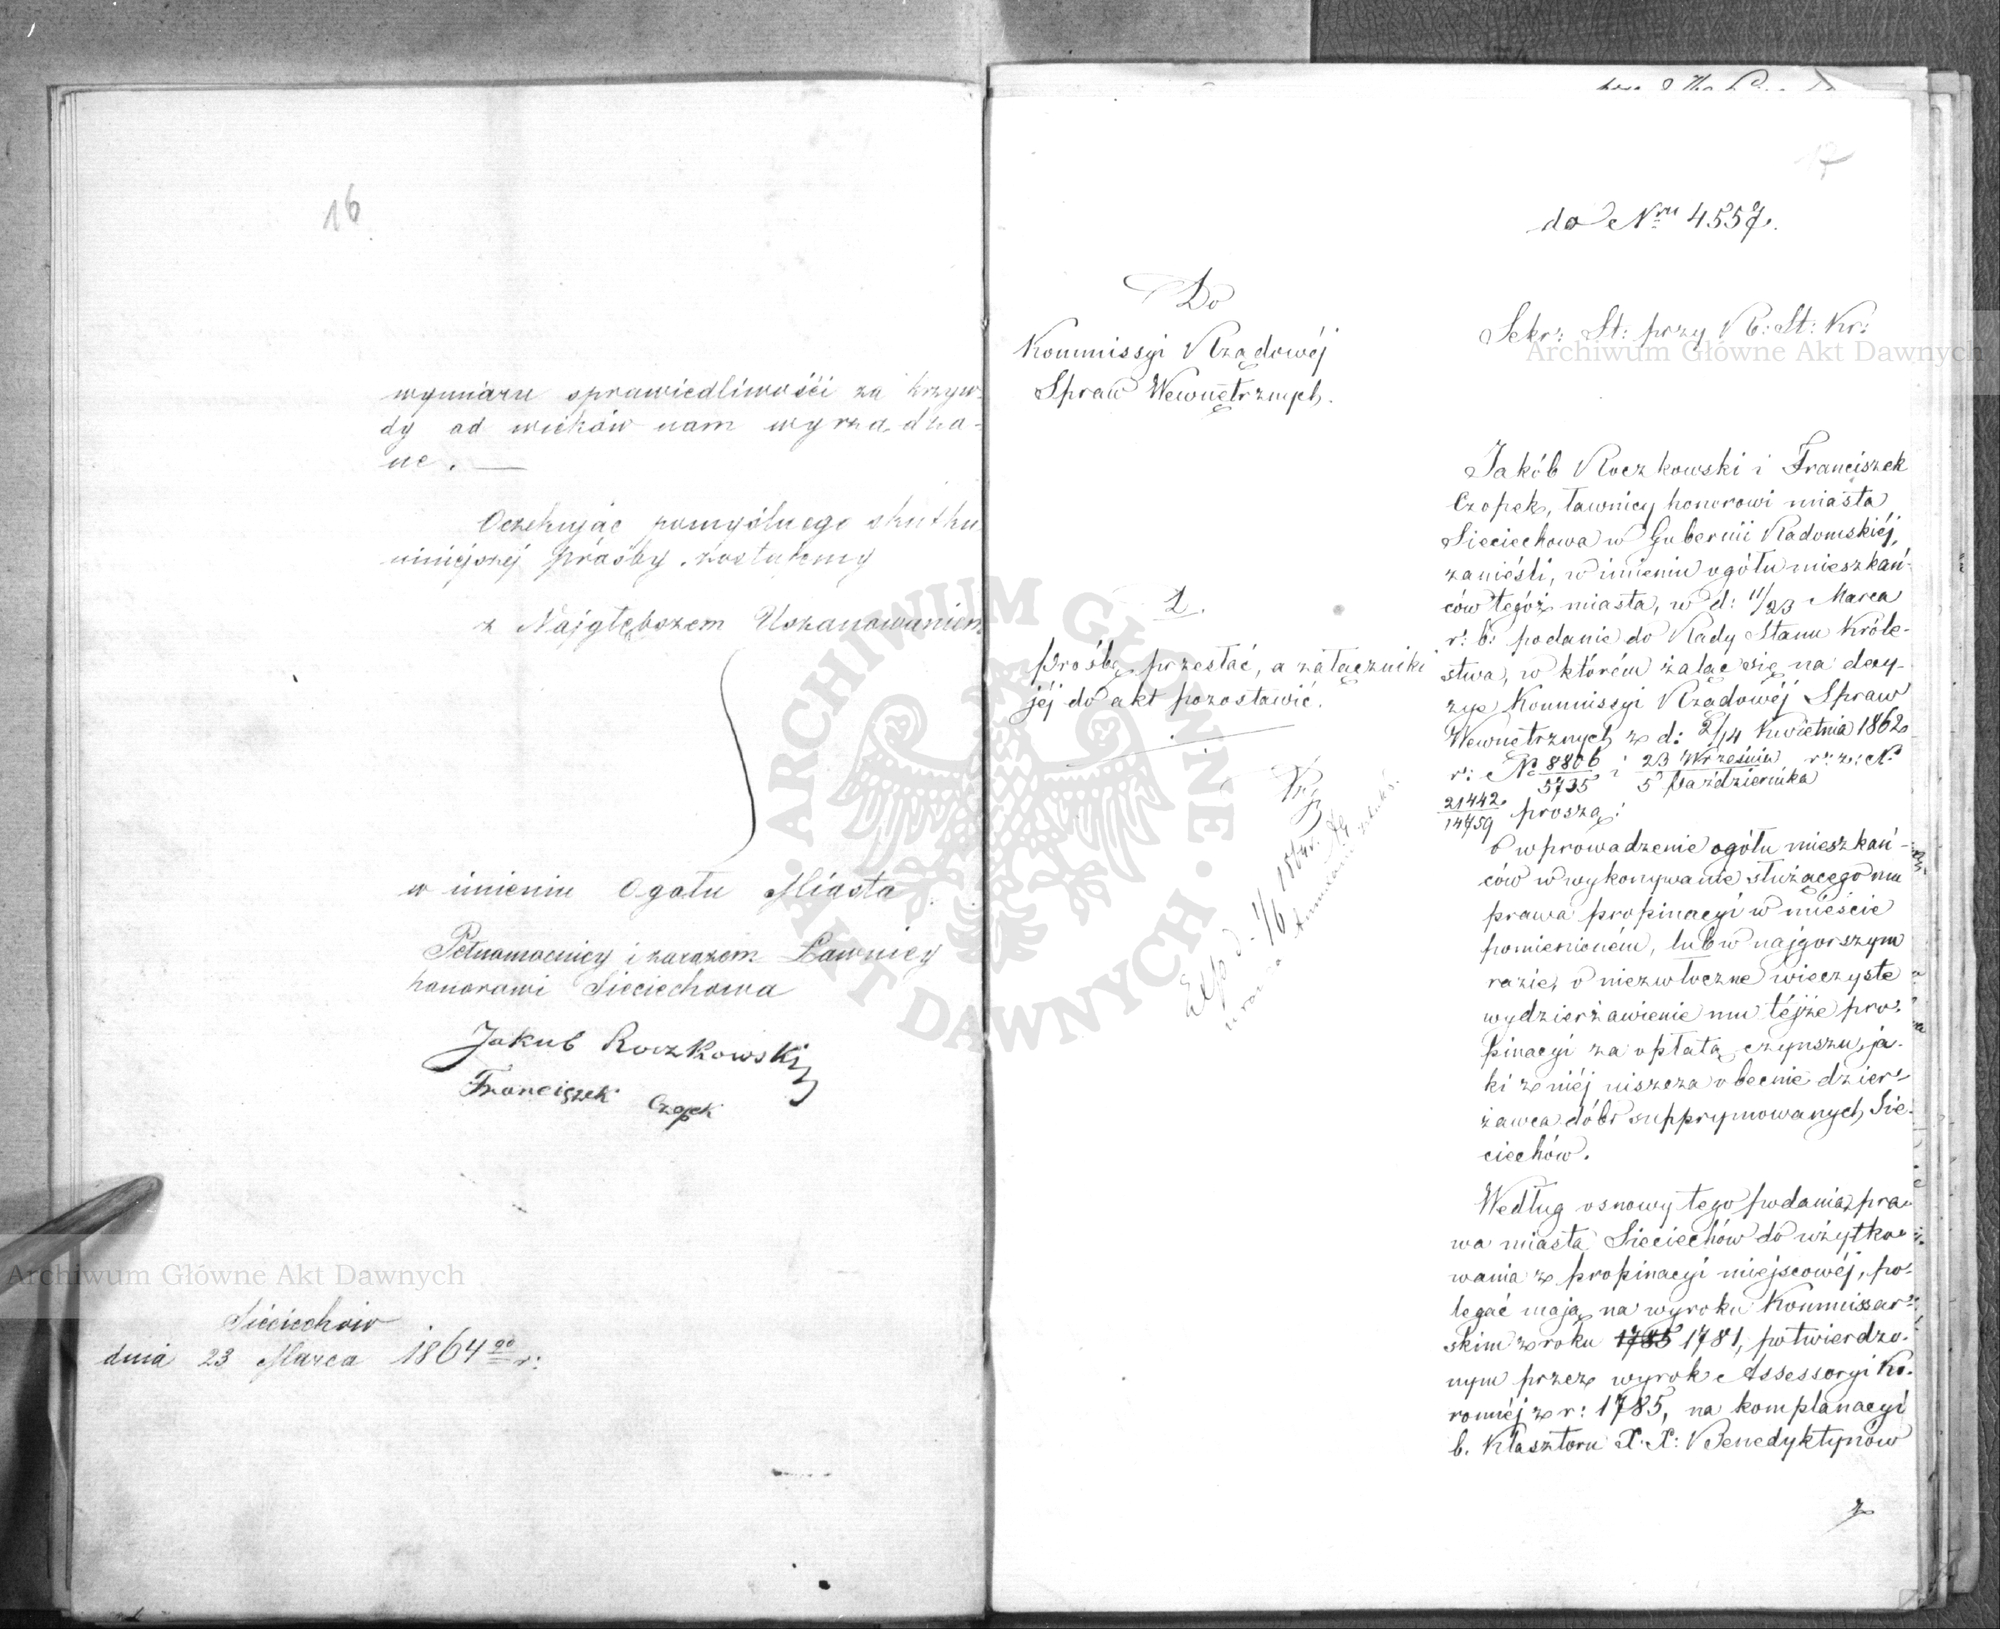 16
wymiaru sprawiedliwości za krzyw-
dy od wieków nam wyrządza-
ne. —
Oczekując pomyślnego skutku
niniejszej Prośby zostajemy
z Najgłębszem Uszanowaniem
w imieniu Ogółu Miasta
Pełnomocnicy i zarazem Ławnicy
honorowi Sieciechowa
Jakub Roczkowski
Franciszek Czopek
Sieciechów
dnia 23 Marca 1864go r:
17
do Nru 4557.
Do
Kommissyi Rządowéj
Spraw Wewnętrznych.
Sekr: St: przy R: St: Kr:
1.
Prośbę przesłać, a załączniki
jéj do akt pozostawić.
Exp d. 1/6 1864 r.
Jakób Roczkowski i Franciszek
Czopek, ławnicy honorowi miasta
Sieciechowa w Gubernii Radomskiéj,
zanieśli, w imieniu ogółu mieszkań-
ców tegóż miasta, w d: 11/23 Marca
r: b: podanie do Rady Stanu Króle-
stwa, w którém żaląc się na decy-
zye Kommissyi Rządowéj Spraw
Wewnętrznych z d: 2/14 Kwietnia 1862
r: No 8806/5735 i 23 Września/5 Października r: z: No
21442/14759 proszą:
o wprowadzenie ogółu mieszkań-
ców w wykonywanie służącego mu
prawa propinacyi w mieście
pomienioném, lub w najgorszym
razie, o niezwłoczne wieczyste
wydzierżawienie mu téjże pro-
pinacyi za opłatą czynszu, ja-
ki z niéj uiszcza obecnie dzier-
żawca dóbr supprymowanych Sie-
ciechów.
Według osnowy tego podania, pra-
wa miasta Sieciechów do użytko-
wania z propinacyi miejscowéj, po-
legać mają na wyroku Kommissar-
skim z roku 1785 1781, potwierdzo-
nym przez wyrok Assessoryi Ko-
ronnéj z r: 1785, na komplanacyi
b. Klasztoru X. X: Benedyktynów
z
Archiwum Główne Akt Dawnych
Archiwum Główne Akt Dawnych
ARCHIWUM GŁÓWNE · AKT DAWNYCH ·